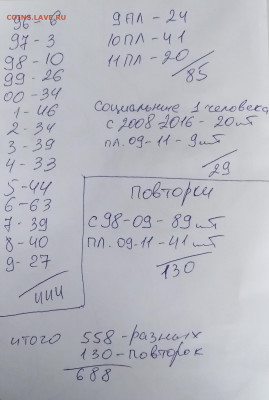 COINSS.LAVE.RU
96-6
97-3
98-10
99-26
00-34
1-46
2-34
3-39
4-33
5-44
6-63
7-39
8-40
9-27
444
9ПЛ-24
10ПЛ-41
11ПЛ-20
85
Социальние 1 человека
с 2008 2016-20шт
пл. 09-11-9шт
29
Повторки
С98-09-89шт
ПЛ. 09-11-41шт
130
итого 558-разных
130-повторок
688